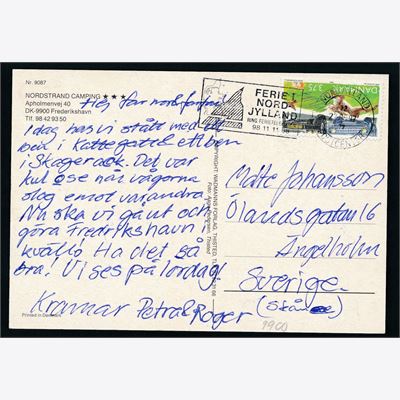 Nr. 9087
NORDSTRAND CAMPING ★★★
Apholmenvej 40
DK-9900 Frederikshavn
Tlf. 98 42 93 50
Hej,
Idag har vi stått med ett
ben i Kattegatt & ett ben
i Skagerack. Det var
kul å se när vågorna
slog emot varandra
Nu ska vi gå ut och
göra Fredrikshavn i
kväll. Ha det så
bra! Vi ses på lördag!
Kramar Petra &
Roger
Printed in Denmark
FERIE I
NORD
JYLLAND
98 11 11
DANMARK
3.75
Johansson
Ölandsgatan 16
Ängelholm
Sverige.
(Skåne)
9900